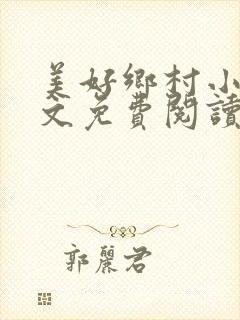 美好鄉村小
文免費閱讀
郭麗君